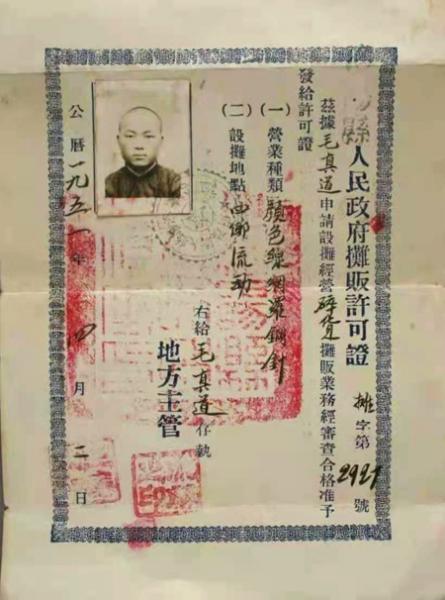 縣人民政府攤販許可證
攤字第2921號
茲據毛真道申請設攤經營碎貨攤販業務經審查合格准予
發給許可證
(一)營業種類 顏色線網羅鋼針
(二)設攤地點 西鄉流动
右給毛真道存執
地方主管
公曆一九五一年四月二日